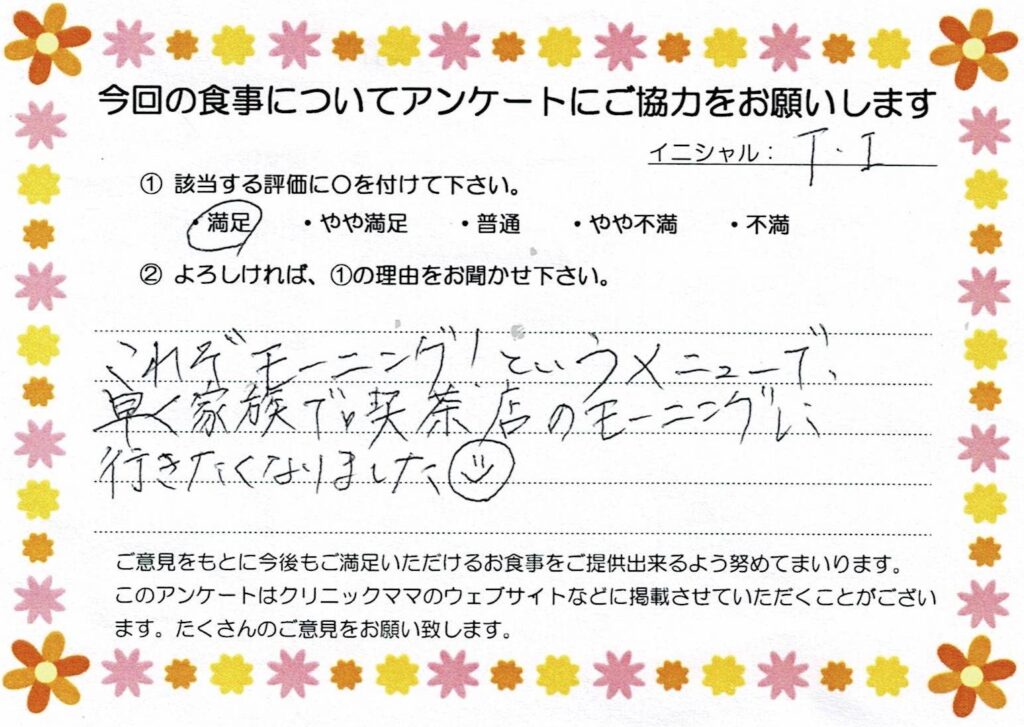 今回の食事についてアンケートにご協力をお願いします
イニシャル： T.I
① 該当する評価に○を付けて下さい。
・満足 ・やや満足 ・普通 ・やや不満 ・不満
② よろしければ、①の理由をお聞かせ下さい。
これぞモーニング!というメニューで、
早く家族で喫茶店のモーニングに
行きたくなりました
ご意見をもとに今後もご満足いただけるお食事をご提供出来るよう努めてまいります。
このアンケートはクリニックママのウェブサイトなどに掲載させていただくことがござい
ます。たくさんのご意見をお願い致します。